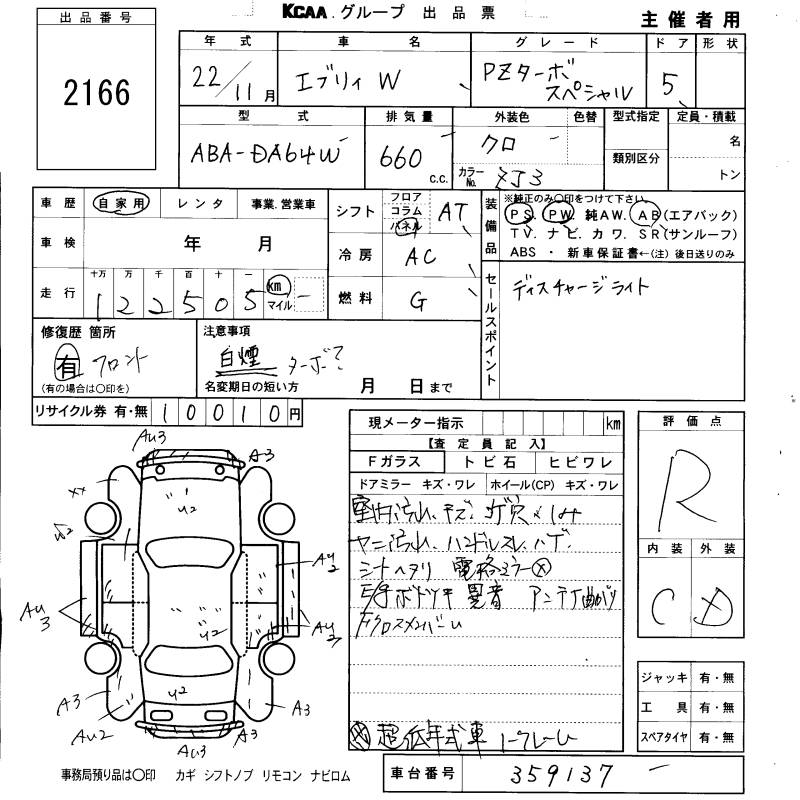 KCAA グループ 出品票
主催者用
出品番号
2166
年式
22/11月
車名
エブリィ W
グレード
PZターボ
スペシャル
ドア
5
形状
型式
ABA-DA64W
排気量
660
c.c.
外装色
クロ
色替
カラーNo.
ZJ3
型式指定
類別区分
定員・積載
名
トン
車歴
自家用
レンタ
事業.営業車
車検
年 月
走行
十万 万 千 百 十 一
1 2 2 5 0 5
km
マイル
シフト
フロア
コラム
パネル
AT
冷房
AC
燃料
G
装備品
※純正のみ○印をつけて下さい。
PS. PW 純AW. AB(エアバック)
TV. ナビ. カワ. SR(サンルーフ)
ABS ・ 新車保証書←(注) 後日送りのみ
セールスポイント
ディスチャージライト
修復歴 箇所
有 フロント
(有の場合は○印を)
注意事項
白煙 ターボ?
名変期日の短い方 月 日まで
リサイクル券 有・無
1 0 0 1 0 円
現メーター指示 km
【査定員記入】
Fガラス
トビ石
ヒビワレ
ドアミラー キズ・ワレ
ホイール(CP) キズ・ワレ
室内汚れ、キズ、
ヤニ汚れ、ハンドルスレ、ハゲ、
シートヘタリ 電格ミラー×
異音 アンテナ曲がり
Fクロスメンバー
超低年式車
評価点
R
内装
外装
C
D
ジャッキ 有・無
工具 有・無
スペアタイヤ 有・無
AU3
A3
XX
U2
AU2
AU3
U2
AU2
A3
U2
A3
AU2
AU3
事務局預り品は○印 カギ シフトノブ リモコン ナビロム
車台番号
359137